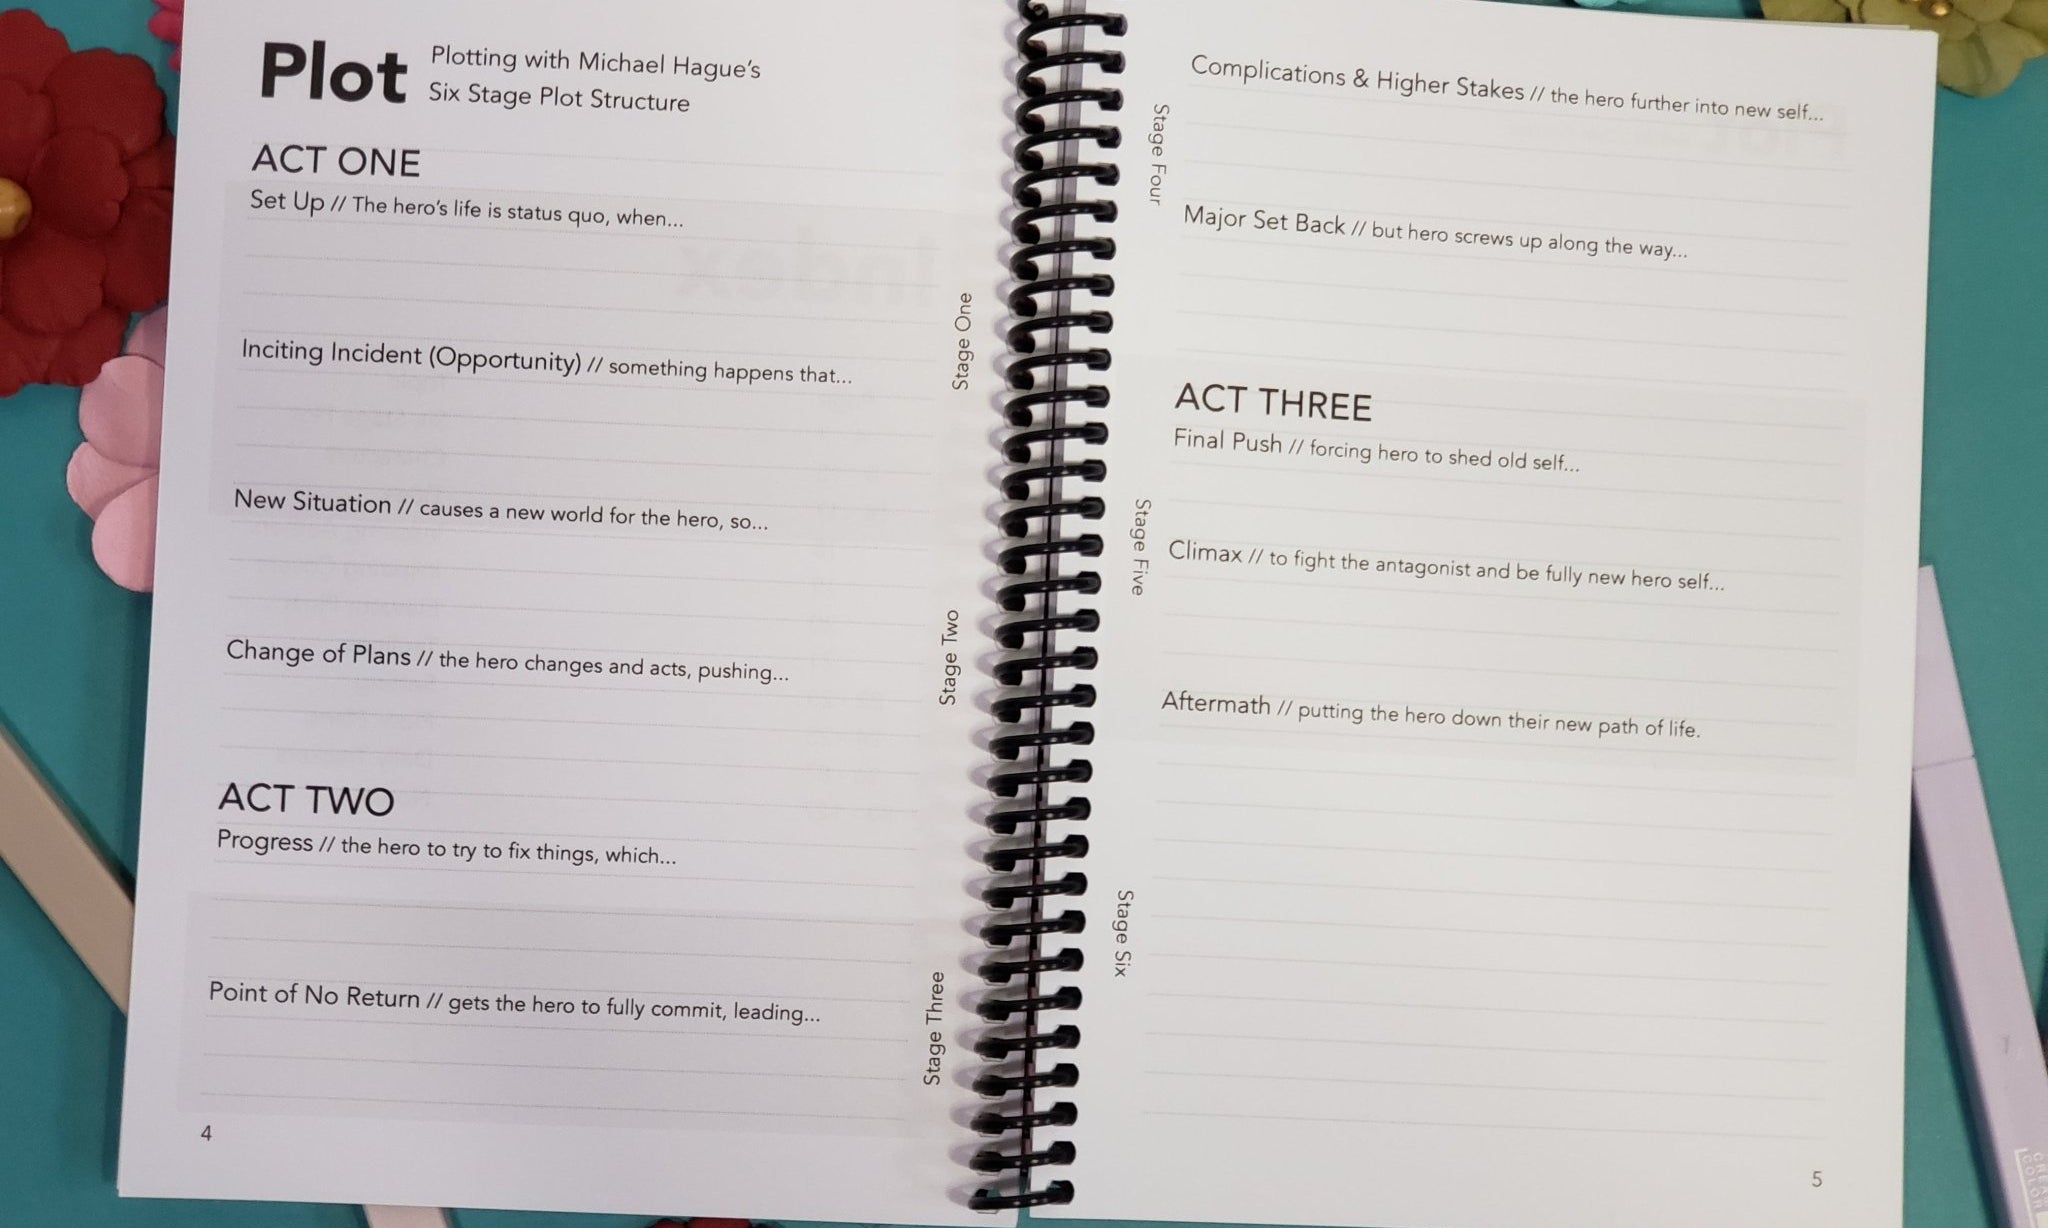 Plot
Plotting with Michael Hague's
Six Stage Plot Structure
ACT ONE
Set Up // The hero's life is status quo, when...
Inciting Incident (Opportunity) // something happens that...
Stage One
New Situation // causes a new world for the hero, so...
Change of Plans // the hero changes and acts, pushing...
Stage Two
ACT TWO
Progress // the hero to try to fix things, which...
Point of No Return // gets the hero to fully commit, leading...
Stage Three
4
Complications & Higher Stakes // the hero further into new self...
Stage Four
Major Set Back // but hero screws up along the way...
ACT THREE
Final Push // forcing hero to shed old self...
Stage Five
Climax // to fight the antagonist and be fully new hero self...
Aftermath // putting the hero down their new path of life.
Stage Six
5
Index